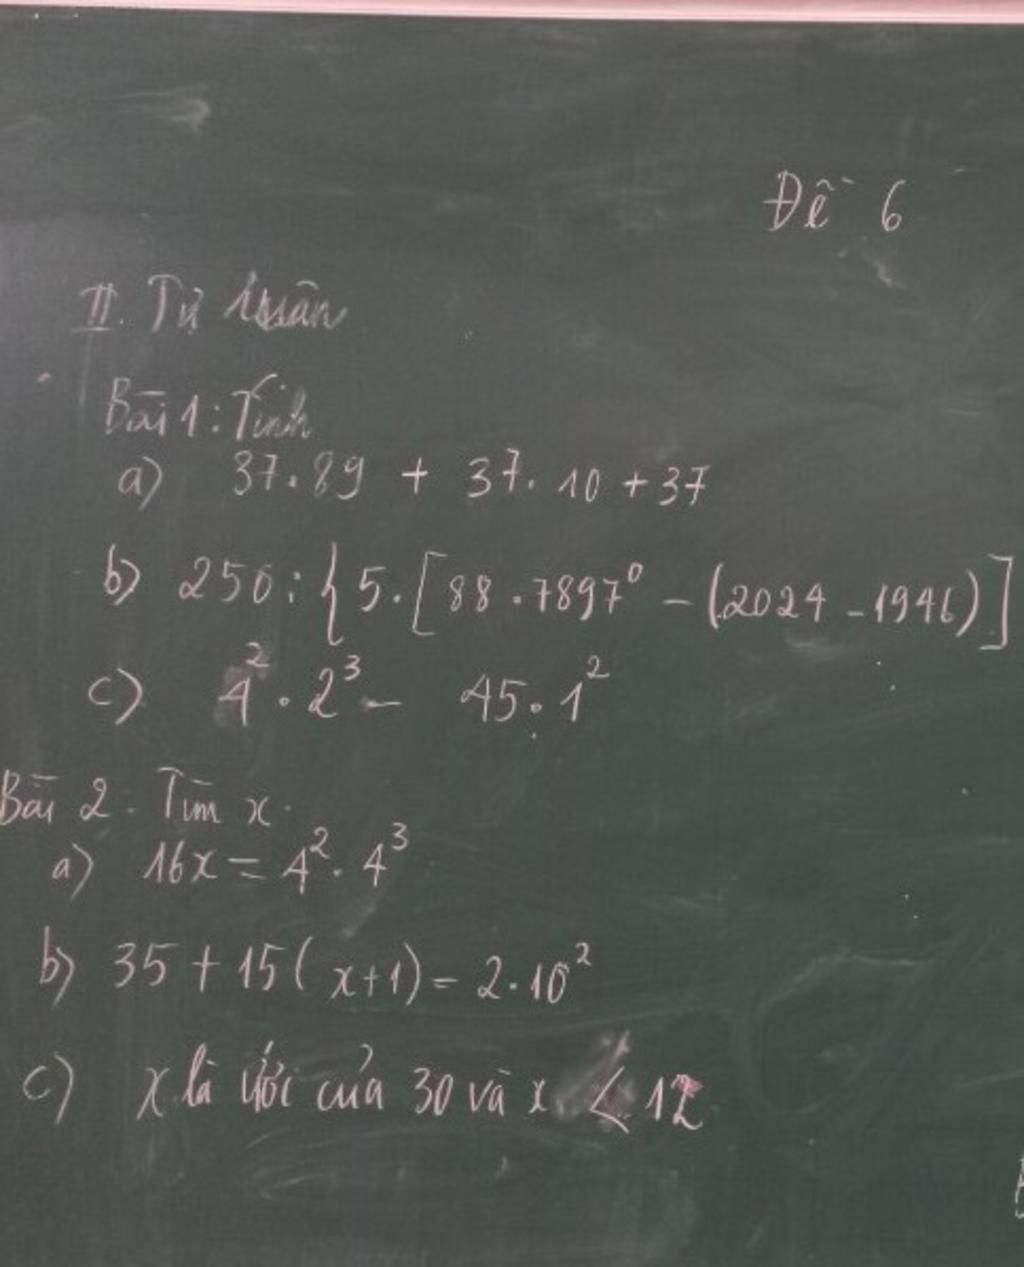 Đề 6
II. Tự luận
Bài 1: Tính
a) 37.89 + 37.10 + 37
b) 250 : { 5.[88.7897⁰ - (2024 - 1946)]
c) 4² . 2³ - 45.1²
Bài 2. Tìm x.
a) 16x = 4² . 4³
b) 35 + 15(x+1) = 2.10²
c) x là ước của 30 và x < 12